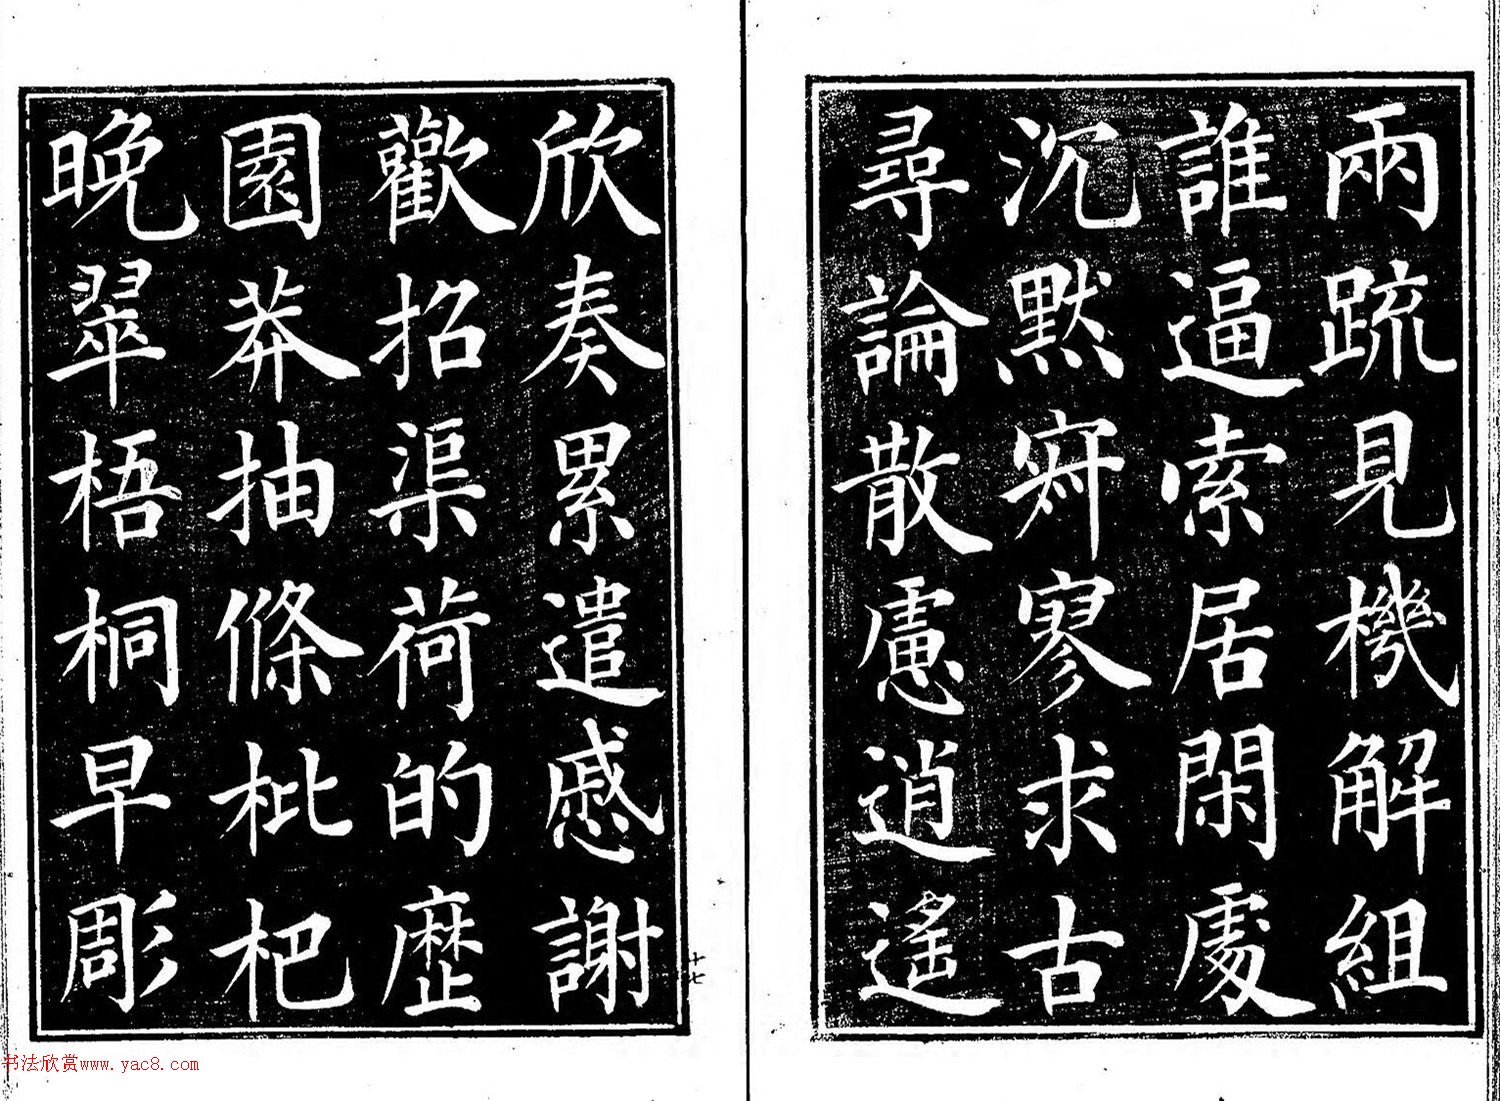 兩疏見機解組
誰逼索居閑處
沉默寂寥求古
尋論散慮逍遙
欣奏累遣慼謝
歡招渠荷的歷
園莽抽條枇杷
晚翠梧桐早彫
十七
书法欣赏www.yac8.com